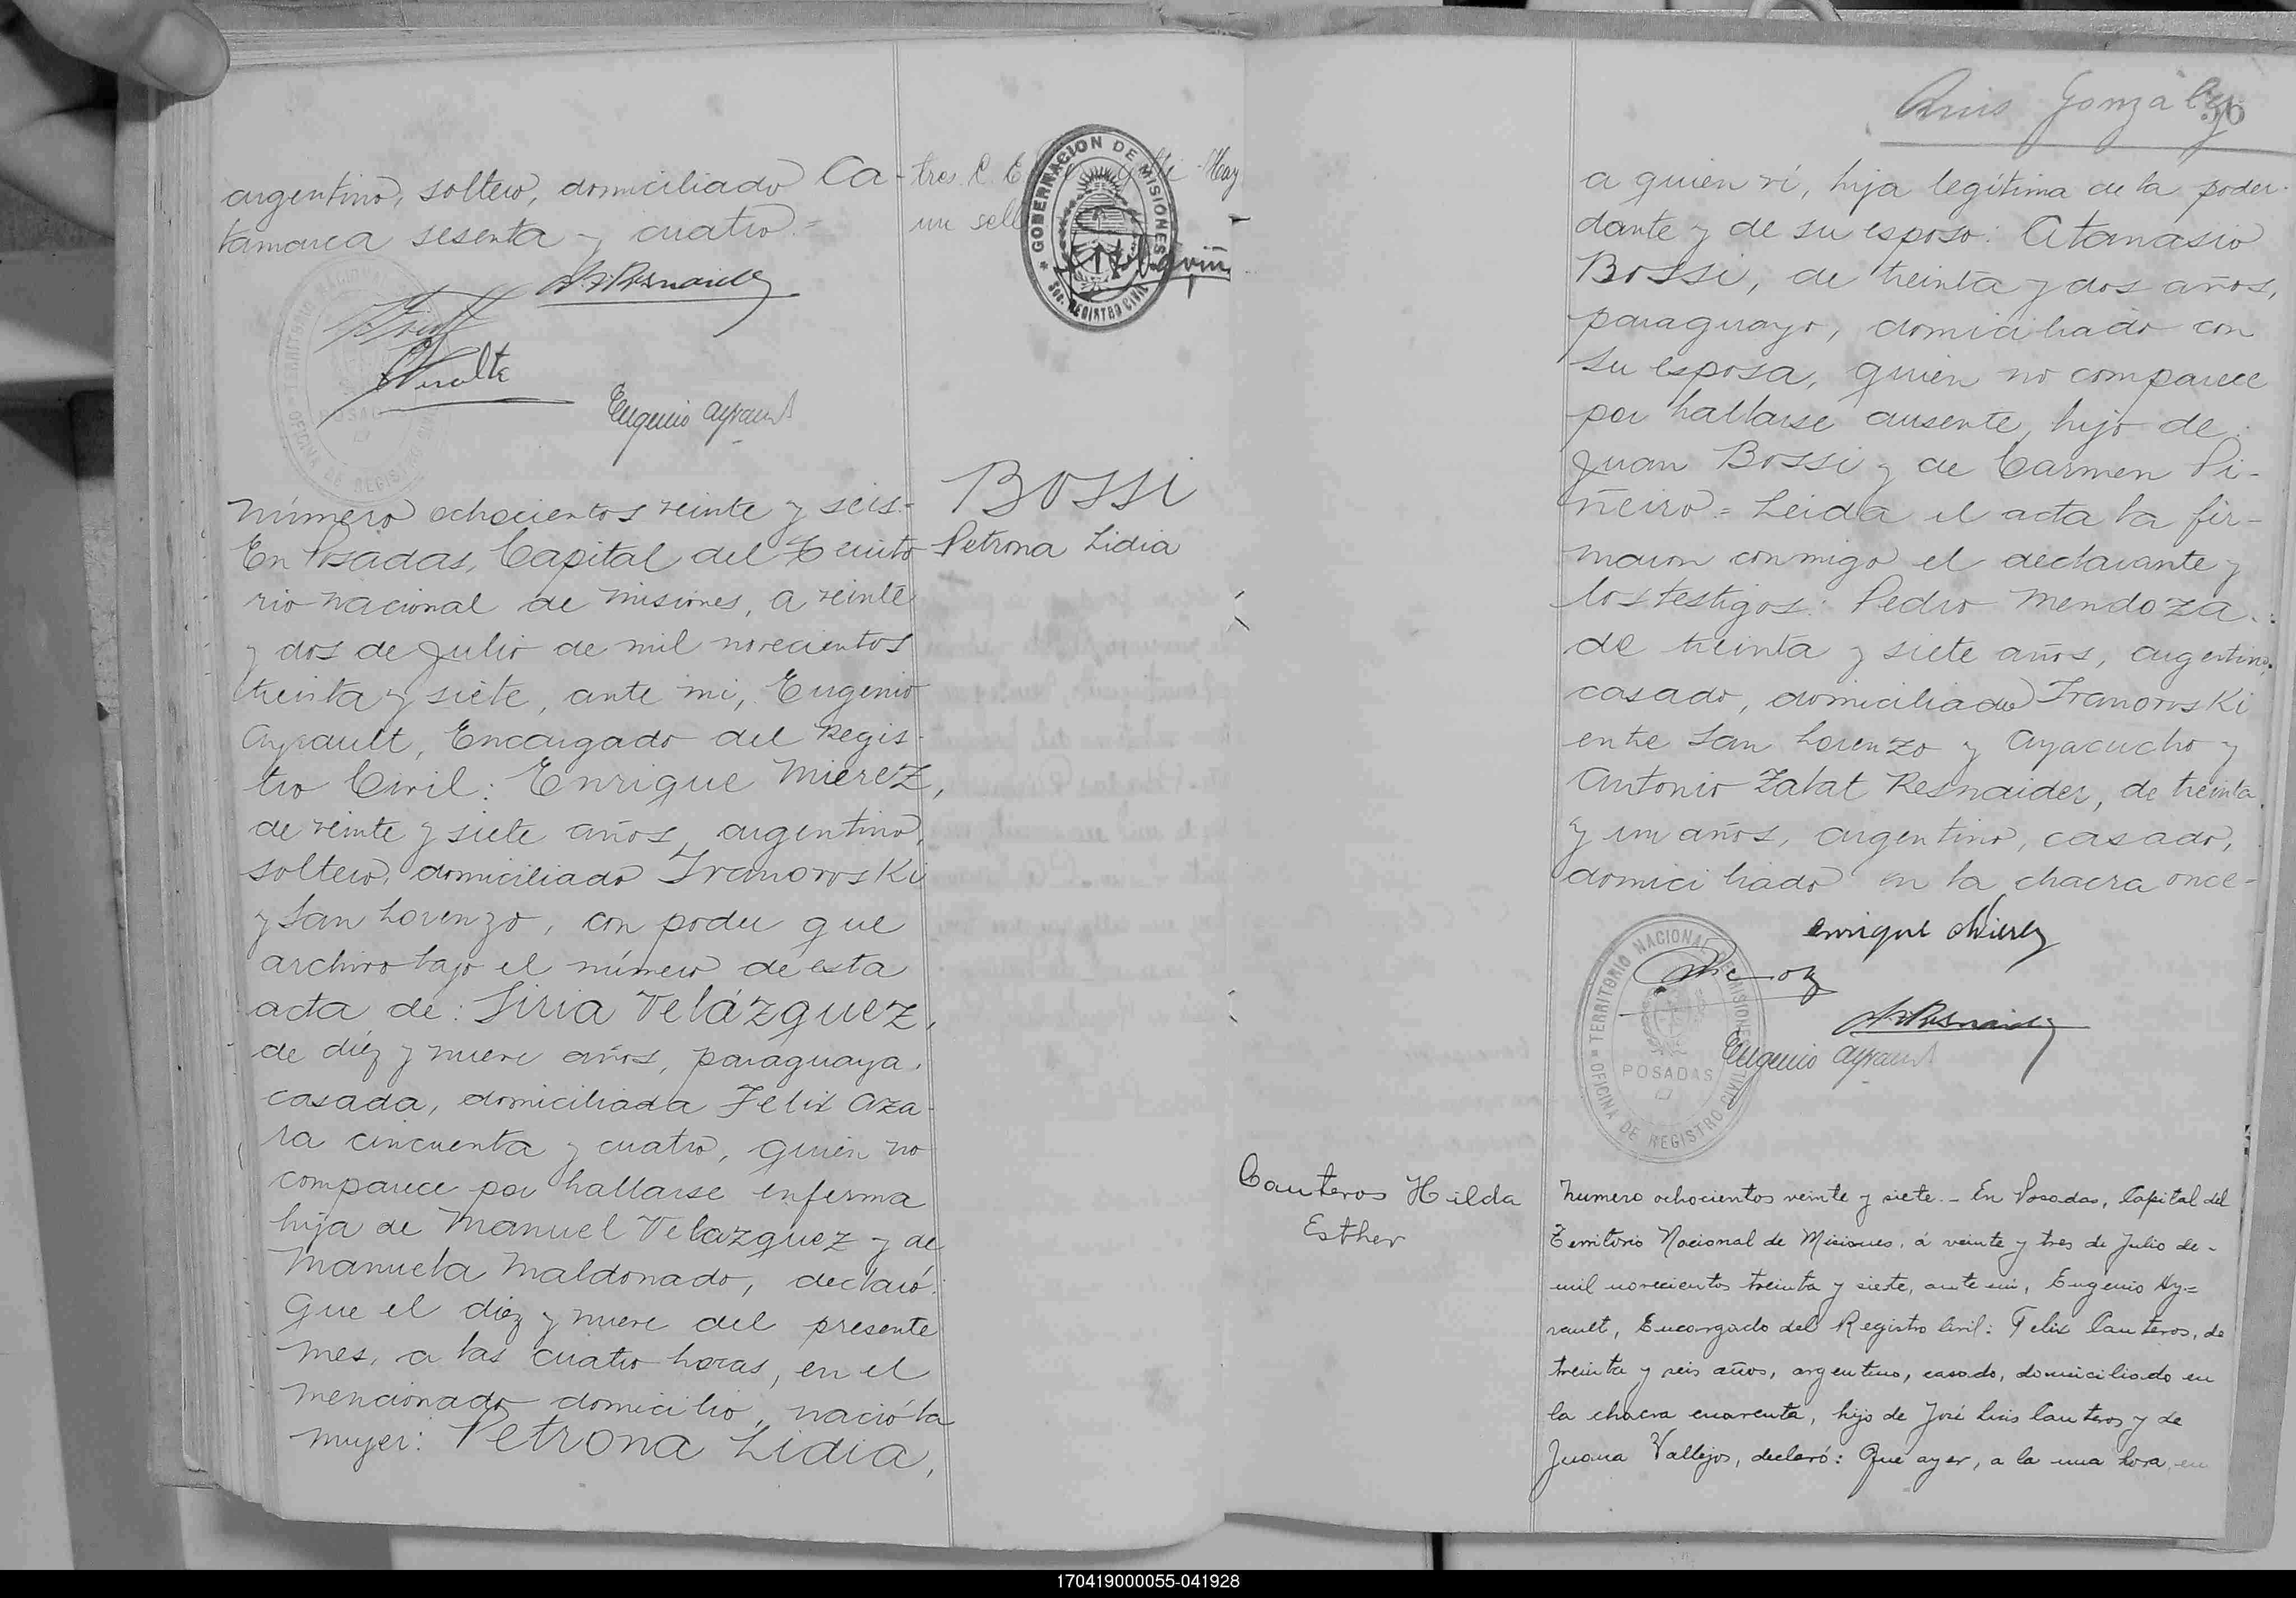 argentino, soltero, domiciliado Ca-
tamarca sesenta y cuatro.=
Eugenio Ayrault
tres. C. E
Hay
un sell
GOBERNACION DE MISIONES
SEC. REGISTRO CIVIL
TERRITORIO NACIONAL
POSADAS
OFICINA DE REGISTRO CIVIL
número ochocientos veinte y seis.-
En Posadas, Capital del Territo
rio nacional de misiones, a veinte
y dos de Julio de mil novecientos
treinta y siete, ante mi, Eugenio
Ayrault, Encargado del Regis-
tro Civil: Enrique Mierez,
de veinte y siete años, argentino,
soltero, domiciliado Tranovoski
y San Lorenzo, con poder que
archivo bajo el número de esta
acta de: Liria Velázquez,
de diez y nueve años, paraguaya,
casada, domiciliada Felix Aza-
ra cincuenta y cuatro, quien no
comparece por hallarse enferma
hija de Manuel Velazquez y de
Manuela Maldonado, declaró:
Que el diez y nueve del presente
mes, a las cuatro horas, en el
mencionado domicilio, nació la
mujer: Petrona Lidia,
BOSSI
Petrona Lidia
Luis González
a quien ví, hija legítima de la poder-
dante y de su esposo: Atanasio
Bossi, de treinta y dos años,
paraguayo, domiciliado con
su esposa, quien no comparece
por hallarse ausente, hijo de
Juan Bossi y de Carmen Pi-
ñeiro.= Leida el acta la fir-
maron conmigo el declarante y
los testigos: Pedro Mendoza
de treinta y siete años, argentino,
casado, domiciliado Tranovoski
entre San Lorenzo y Ayacucho y
Antonio Zabat Resnaider, de treinta
y un años, argentino, casado,
domiciliado en la chacra once-
enrique Mierez
Eugenio Ayrault
TERRITORIO NACIONAL DE MISIONES
POSADAS
OFICINA DE REGISTRO CIVIL
Canteros Hilda
Esther
Numero ochocientos veinte y siete.- En Posadas, Capital del
Territorio Nacional de Misiones, á veinte y tres de Julio de-
mil novecientos treinta y siete, ante mi, Eugenio Ay=
rault, Encargado del Registro Civil: Felix Canteros, de
treinta y seis años, argentino, casado, domiciliado en
la chacra cuarenta, hijo de José Luis Canteros y de
Juana Vallejos, declaró: Que ayer, a la una hora, en
170419000055-041928